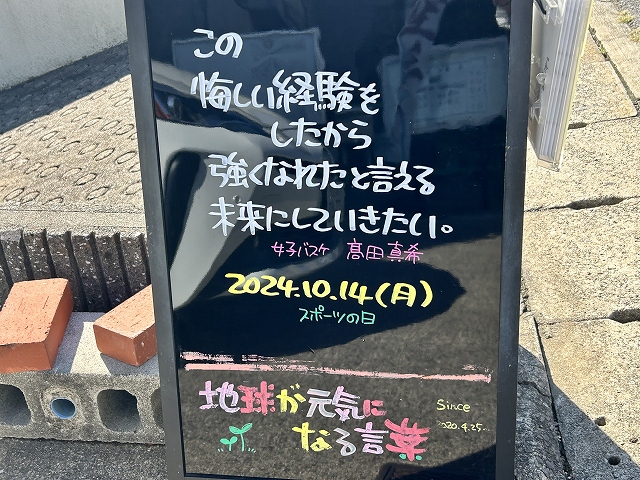 この
悔しい経験を
したから
強くなれたと言える
未来にしていきたい。
女子バスケ 髙田真希
2024.10.14(月)
スポーツの日
地球が元気に
なる言葉
Since
2020.4.25